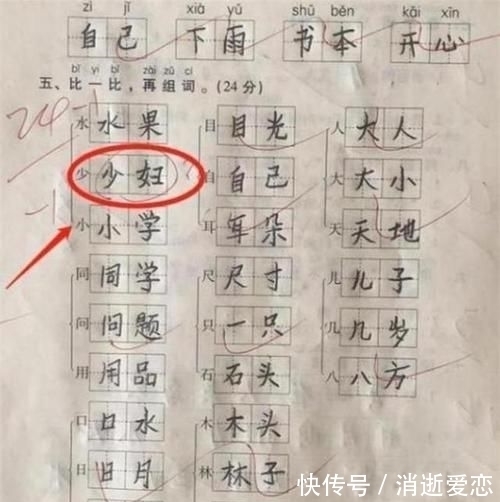 zì jǐ xià yǔ shū běn kāi xīn
自己 下雨 书本 开心
bǐ yi bǐ zài zǔ cí
五、比一比，再组词。(24分)
24-1
水 水果 目 目光 人 大人
少 少妇 自 自己 大 大小
-1
小 小学 耳 耳朵 天 天地
同 同学 尺 尺寸 儿 儿子
问 问题 只 一只 几 几岁
用 用品 石 石头 八 八方
口 口水 木 木头
日 日月 林 林子
快传号/消逝爱恋